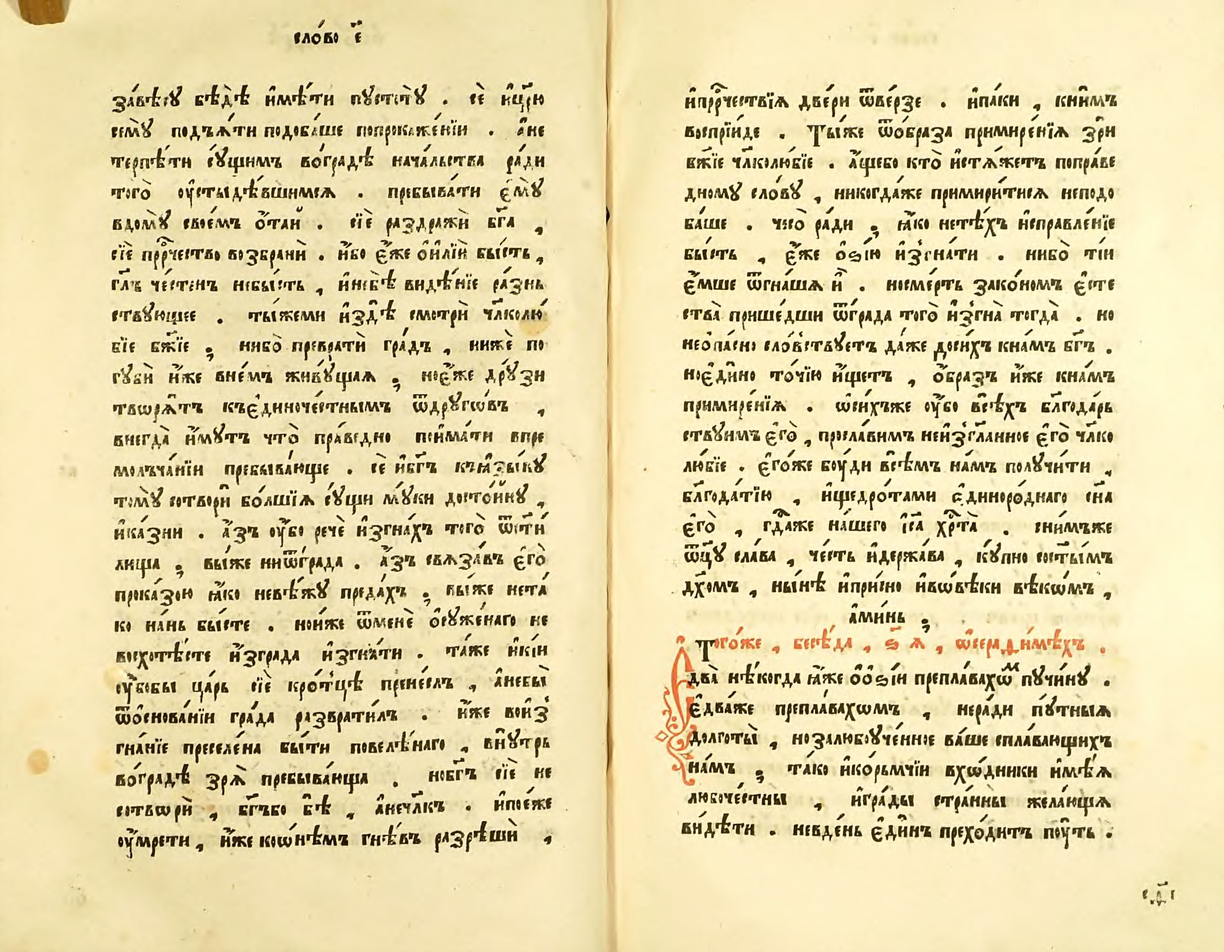 сло́во є҃
за́вѣсꙋ бѣ́дѣ и҆мѣ́ти пꙋстотꙋ̀ . сѐ и҆цр҃ю
семꙋ̀ подъѧ́ти подоба́ше попрокаже́нїи . а҆не
терпѣ́ти сꙋ́щимъ во́градѣ нача́льства ра́ди
того̀ оу҆стыдѣ́вшимсѧ . пребыва́ти є҆мꙋ̀
вдомꙋ̀ свое́мъ ѻ҆тай . сїѐ раздражѝ бг҃а ,
сїѐ прⷪ҇рчество возбранѝ . и҆бо є҆́же ѻ҆и҆лїѝ бы́сть ,
гл҃ъ че́стенъ небы́сть , и҆небѣ̀ видѣ́нїе разнь
ствꙋющее . ты́жеми и҆здѣ̀ смотрѝ чл҃колю
бїе бж҃їе ; нибо̀ превратѝ гра́дъ , ниже по
гꙋбѝ и҆̀же вне́мъ живꙋ́щаѧ ; ноє҆́же дрꙋ́зи
творѧ́тъ къє҆диноче́стнымъ ѿдрꙋгѡ́въ ,
внегда̀ и҆́мꙋтъ что̀ пра́ведно пои҆ма́ти впре
молъча́нїи пребыва́юще . сѐ и҆бг҃ъ къꙗ҆зы́кꙋ
томꙋ̀ сотворѝ бо́лшїѧ сꙋ́щи мꙋ́ки досто́йнꙋ ,
и҆ка́зни . а҆́зъ оу҆́бо речѐ и҆згна́хъ того̀ ѿст҃и
лища ; вы́же ниѿгра́да . а҆́зъ свѧза́въ є҆го̀
прока́зою ꙗ҆́ко невѣ́жꙋ преда́хъ ; вы́же нета́
ко на́нь бы́сте . нои҆́же ѿменѐ ѻ҆сꙋже́наго не
восхотѣ́сте и҆згра́да и҆згна́ти . та́же и҆кі́й
оу҆́бобы ца́рь сїѐ кро́тцѣ пренеслъ , а҆небы̀
ѿѻ҆снова́нїи гра́да разврати́лъ . и҆́же вои҆з̾
гна́нїе преселе́на бы́ти повелѣ́наго , внꙋ́трь
воградѣ̀ зрѧ̀ пребыва́юща . нобг҃ъ сїѐ не
сотворѝ , бг҃ъбо бѣ̀ , а҆нечл҃къ . и҆поє҆́же
оу҆мрети , и҆́же коѡ҆не́мъ гнѣ́въ разрѣшѝ ,
и҆прⷪ҇рчествїѧ двери ѿве́рзе . и҆паки , книмъ
воспрїи́де . Ты́же ѿѻ́браза примире́нїѧ зрѝ
бж҃їе чл҃колю́бїе . а҆́щебо кто̀ и҆стѧ́жетъ поправе
дномꙋ сло́вꙋ , никогда́же примири́тисѧ неподо
ба́ше . чесо̀ ра́ди ; ꙗ҆́ко нетѣ́хъ и҆справле́нїе
бы́сть , є҆́же ѻ҆ѕі́ю и҆згна́ти . нибо̀ ті́и
є҆́мше ѿгна́шѧ и҆̀ . носме́рть зако́номъ є҆сте
ства прише́дши ѿгра́да того̀ и҆згна̀ тогда̀ . но
неѻ҆па́сно сло́вствꙋетъ да́же доси́хъ кна́мъ бг҃ъ .
ноє҆ди́но то́чїю и҆́щетъ , ѻ҆́бразъ и҆́же кна́мъ
примире́нїѧ . ѡ҆си́хъже оу҆́бо всѣ́хъ блг҃одарь
ствꙋимъ є҆го̀ , просла́вимъ неи҆згла́нное є҆го̀ чл҃ко
лю́бїе . є҆го́же бꙋ́ди всѣ́мъ на́мъ полꙋчи́ти ,
блг҃ода́тїю , и҆щедро́тами є҆диноро́днаго сн҃а
є҆го̀ , гдⷭ҇а́же на́шего і҆с҃а хрⷭ҇та̀ . сни́мъже
ѻц҃ꙋ сла́ва , че́сть и҆держа́ва , кꙋ́пно сост҃ы́мъ
дх҃омъ , ны́нѣ и҆при́сно и҆вовѣ́ки вѣко́мъ ,
а҆ми́нь ;
Того́же , бесѣ́да , ѕ҃ ѧ , ѡ҆серафи́мѣхъ .
Едва̀ нѣ́когда ꙗ҆́же ѻ҆ѻ҆ѕі́и преплавахѡⷨ пꙋчи́нꙋ .
є҆два́же преплавахѡмъ , нера́ди пꙋ́тныѧ
долготы̀ , нозалюбоꙋче́нное ва́ше сплавающихъ
на́мъ ; та́ко и҆ко́рьмчїи вхѡ́дники и҆мѣ́ѧ
любоче́стны , и҆гра́ды стра́нны жела́ющѧ
ви́дѣти . невде́нь є҆ди́нъ прехо́дитъ пꙋть .